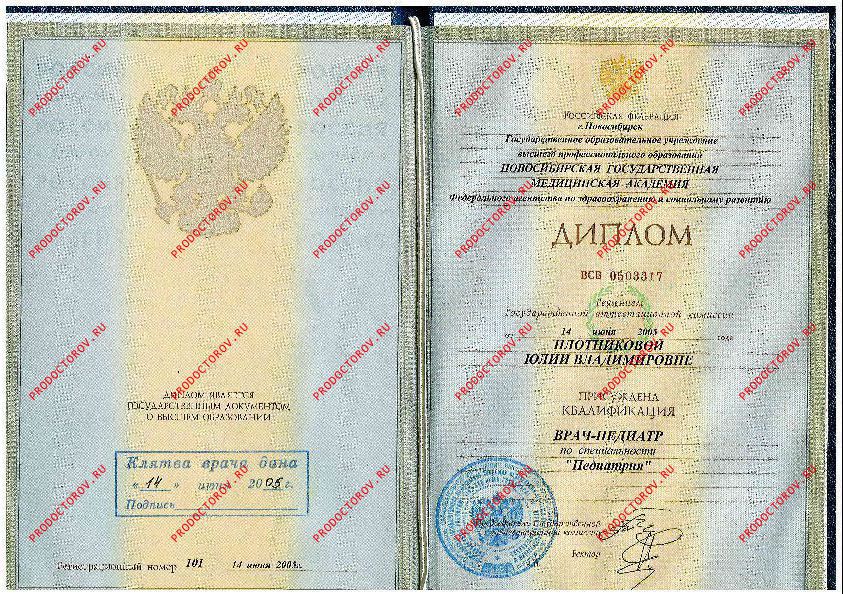 ДИПЛОМ ЯВЛЯЕТСЯ
ГОСУДАРСТВЕННЫМ ДОКУМЕНТОМ
О ВЫСШЕМ ОБРАЗОВАНИИ
Клятва врача дана
«14» июня 2005 г.
Подпись
Регистрационный номер 101 14 июня
РОССИЙСКАЯ ФЕДЕРАЦИЯ
г. Новосибирск
Государственное образовательное учреждение
высшего профессионального образования
НОВОСИБИРСКАЯ ГОСУДАРСТВЕННАЯ
МЕДИЦИНСКАЯ АКАДЕМИЯ
Федерального агентства по здравоохранению и социальному развитию
ДИПЛОМ
ВСВ 0503317
Решением
Государственной аттестационной комиссии
от 14 июня 2005 года
ПЛОТНИКОВОЙ
ЮЛИИ ВЛАДИМИРОВНЕ
ПРИСУЖДЕНА
КВАЛИФИКАЦИЯ
ВРАЧ-ПЕДИАТР
по специальности
"Педиатрия"
Председатель Государственной
аттестационной комиссии
Ректор
PRODOCTOROV.RU